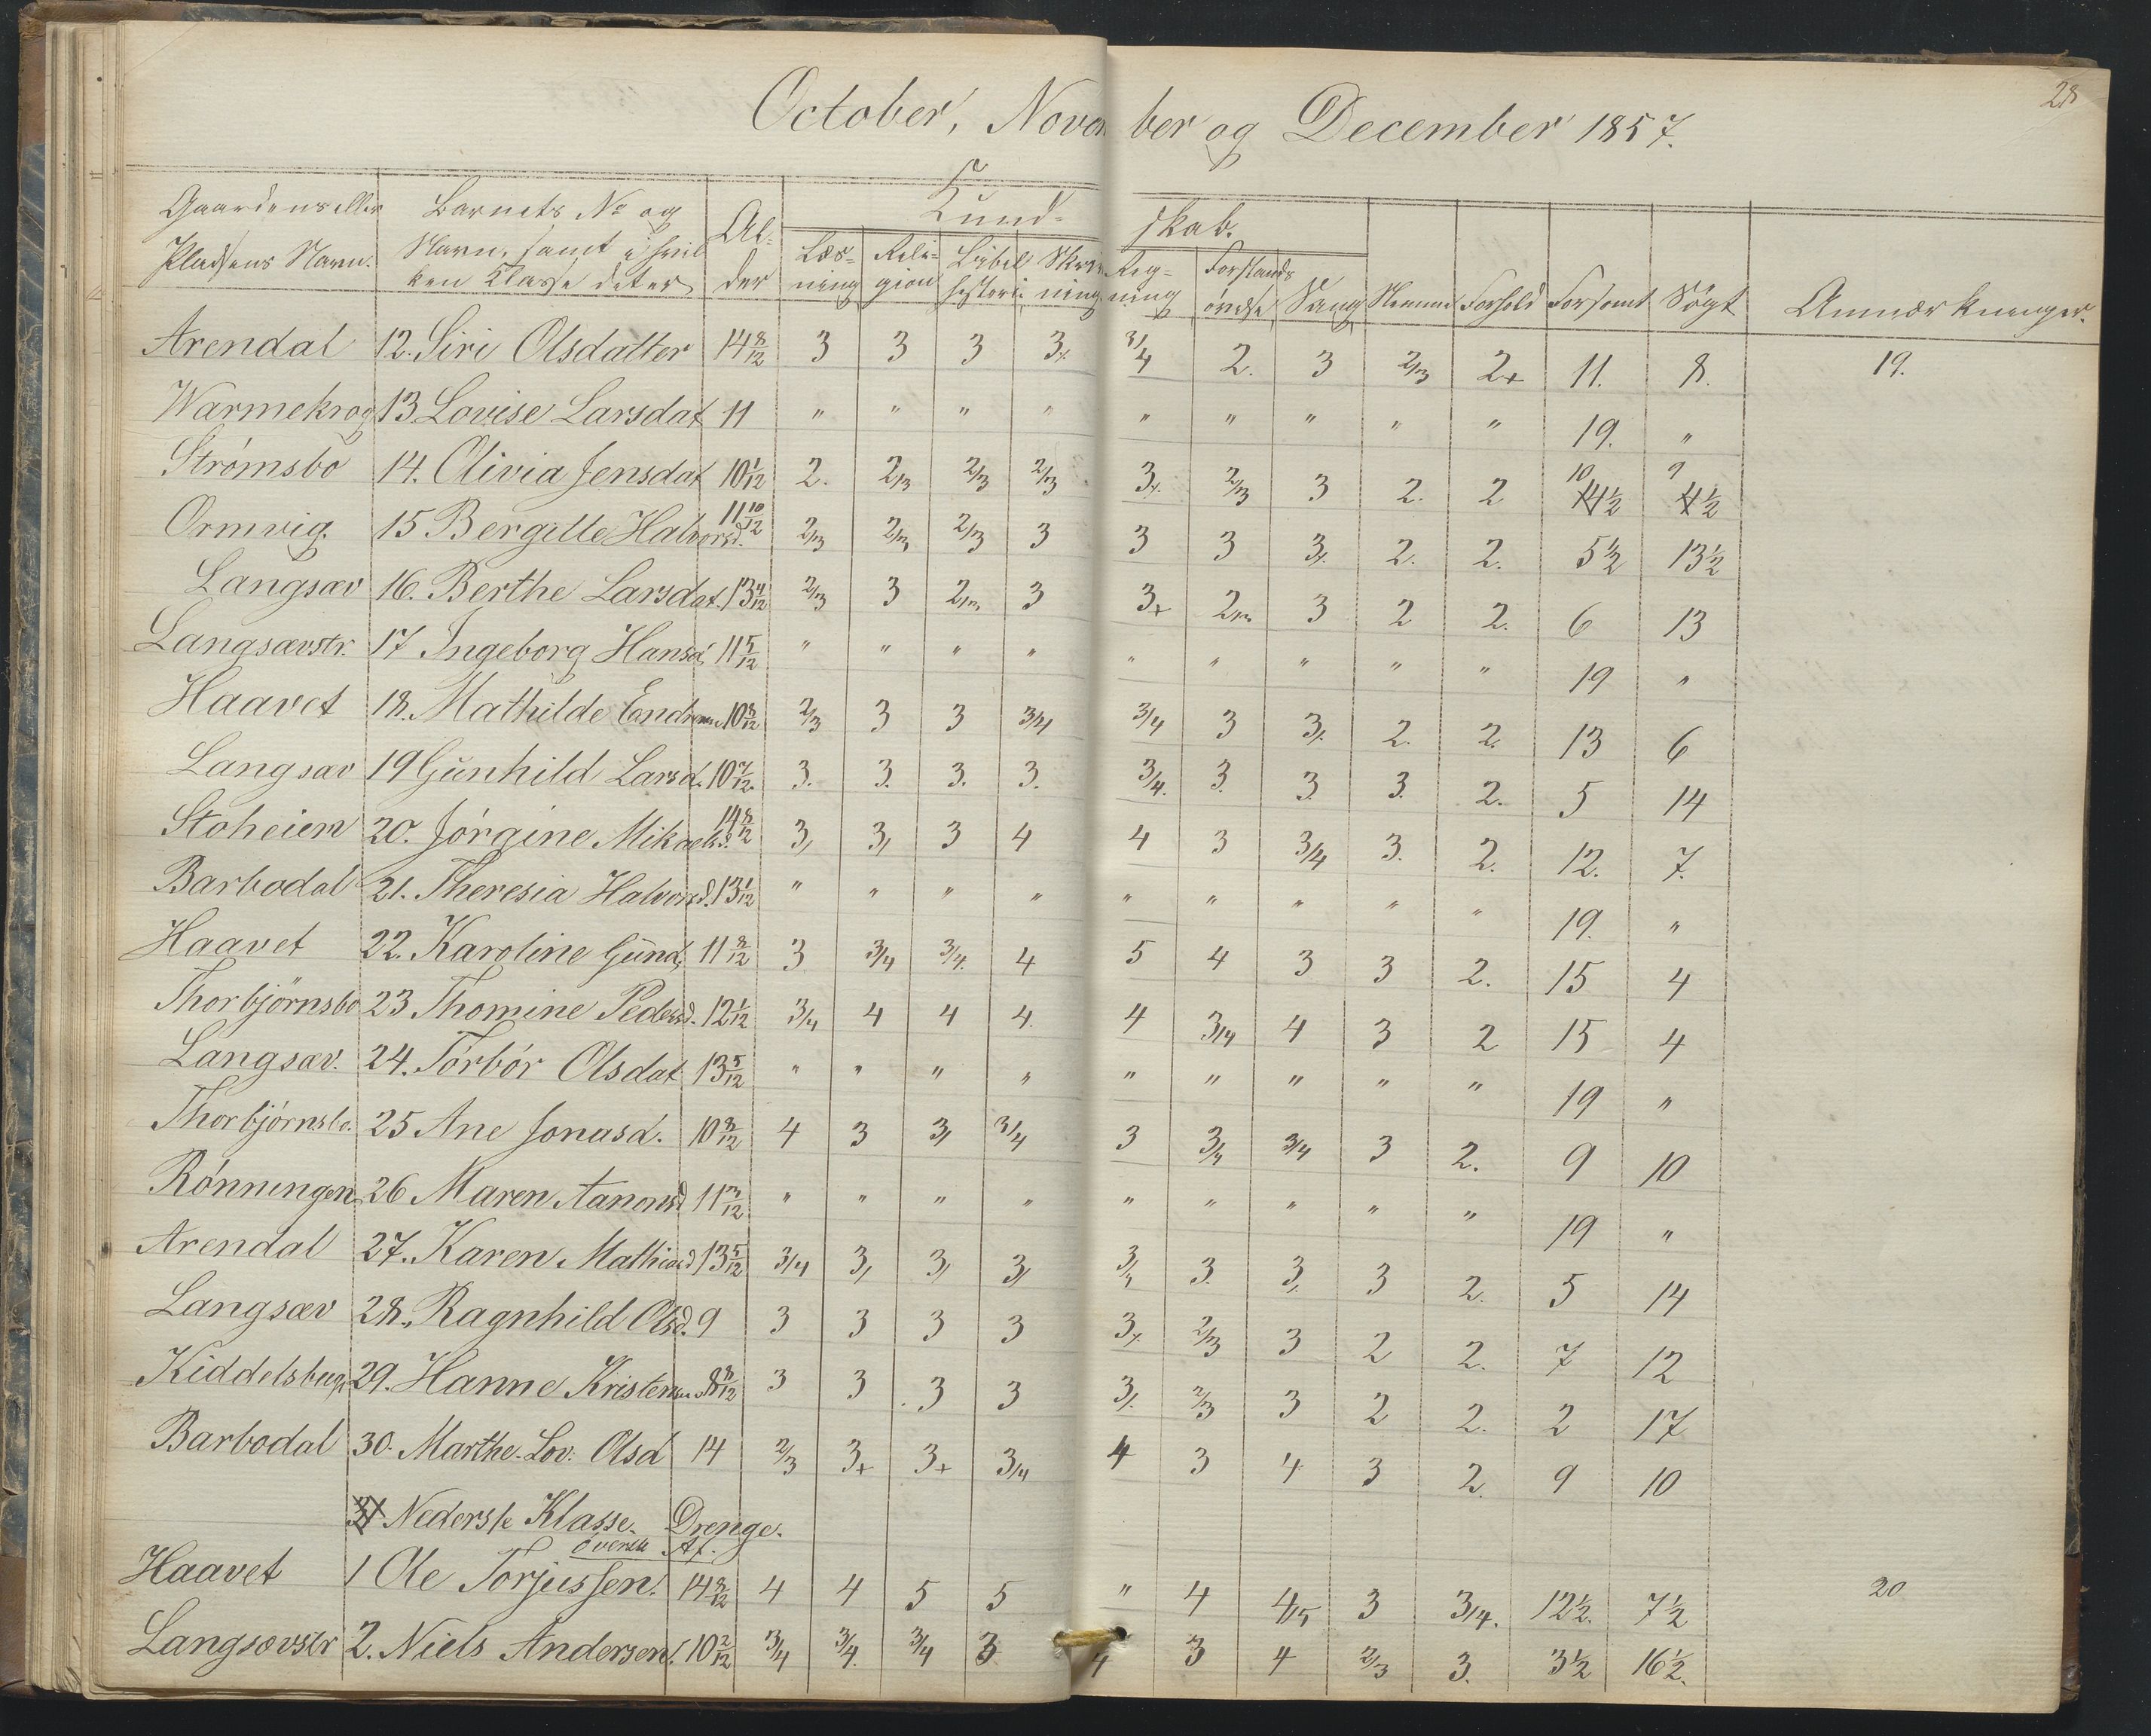 28
October, Novem ber og December 1857.
Gaardens eller Pladsens Navn. Barnets No og Navn, samt i hvilken Klasse det er Alder Kundskab.
Læsning Religion Bibelhistorie Skrivning Regning Forstandsøvelse Sang Nemme Forhold Forsømt Søgt Anmærkninger.
Arendal 12. Siri Olsdatter 14 8/12 3 3 3 3x 3/4 2. 3 2/3 2+ 11. 8. 19.
Warmekrog 13 Lovise Larsdat 11 " " " " " " " " " 19. "
Strømsbo 14. Olivia Jensdat 10 1/12 2. 2/3 2/3 2/3 3x 2/3 3 2. 2 10 1/2 9 1/2
Ormvig. 15 Bergitte Halvorsd. 11 10/12 2/3 2/3 2/3 3 3 3 3x. 2. 2. 5 1/2 13 1/2
Langsæv 16. Berthe Larsdat. 13 4/12 2/3 3 2/3 3 3+ 2/3 3 2 2. 6 13
Langsævstr. 17 Ingeborg Hansd. 11 5/12 " " " " " " " " " 19 "
Haavet 18. Mathilde 10 8/12 2/3 3 3 3/4 3/4 3 3x. 2. 2. 13 6
Langsæv 19 Gunhild Larsd. 10 7/12. 3. 3. 3. 3. 3/4. 3. 3 3. 2. 5 14
Stoheien 20. Jørgine Mikaelsd. 14 8/12 3, 3, 3 4 4 3 3/4 3. 2. 12. 7.
Barbodal 21. Theresia Halvorsd. 13 1/12 " " " " " " " " " 19. "
Haavet 22. Karoline Gund. 11 8/12 3 3/4 3/4. 4 5 4 3 3 2. 15 4
Thorbjörnsbo 23 Thomine Pedersd. 12 1/12 3/4 4 4 4. 4 3/4 4 3 2 15 4
Langsæv. 24. Torbór Olsdat 13 5/12 " " " " " " " " " 19 "
Thorbjørnsbo. 25 Ane Jonasd. 10 8/12 4 3 3, 3/4 3 3/4 3/4 3 2. 9 10
Rónningen 26 Maren Aanonsd 11 3/12 " " " " " " " " " 19 "
Arendal 27. Karen Mathiasd 13 5/12 3/4 3, 3, 3, 3/4 3. 3, 3 2. 5 14
Langsæv 28., Ragnhild Olsd. 9 3 3 3 3 3x 2/3 3 2 2. 7 12
Kiddelsberg 29. Hanne 8 8/12 3 3 3 3 3x. 2/3 3 2 2. 2 17
Barbodal 30. Marthe. Lov: Olsd 14 2/3 3+ 3+ 3/4 4 3 4 3 2. 9 10
31 Nederste Klasse. Drenge.
øverste Af.
Haavet 1 Ole Torjussen. 14 8/12 4 4 5 5 " 4 4/5 3 3/4. 12 1/2. 7 1/2 20
Langsovstr 2. Niels Andersen. 10 2/12 3/4 3/4. 3/4 3 4 3 4 2/3 3. 3 1/2 16 1/2.